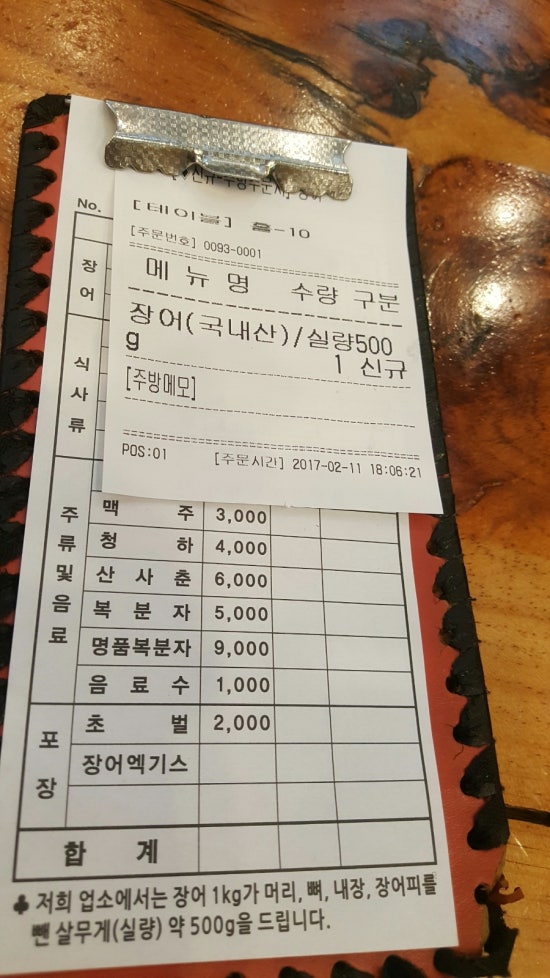 [테이블] 홀-10
[주문번호] 0093-0001
메 뉴 명 수량 구분
장어(국내산)/실량500
g 1 신규
[주방메모]
POS:01 [주문시간] 2017-02-11 18:06:21
No.
장어
식사류
주류및음료
맥 주 3,000
청 하 4,000
산 사 춘 6,000
복 분 자 5,000
명품복분자 9,000
음 료 수 1,000
포장
초 벌 2,000
장어엑기스
합 계
♣ 저희 업소에서는 장어 1kg가 머리, 뼈, 내장, 장어피를
뺀 살무게(실량) 약 500g을 드립니다.